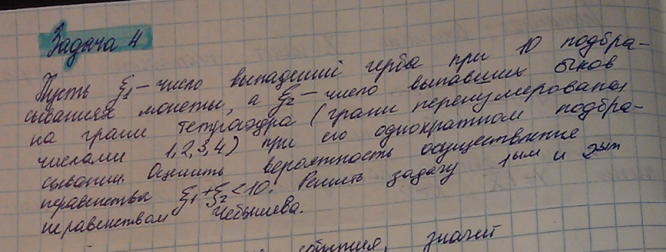 Задача 4
Пусть ξ₁ – число выпадений герба при 10 подбра-
сываниях монеты, а ξ₂ – число выпавших очков
на грани тетраэдра (грани перенумерованы
числами 1,2,3,4) при его однократном подбра-
сывании. Оценить вероятность осуществление
неравенства ξ₁+ξ₂<10. Решить задачу 1ым и 2ым
неравенством Чебышева.
события, значит